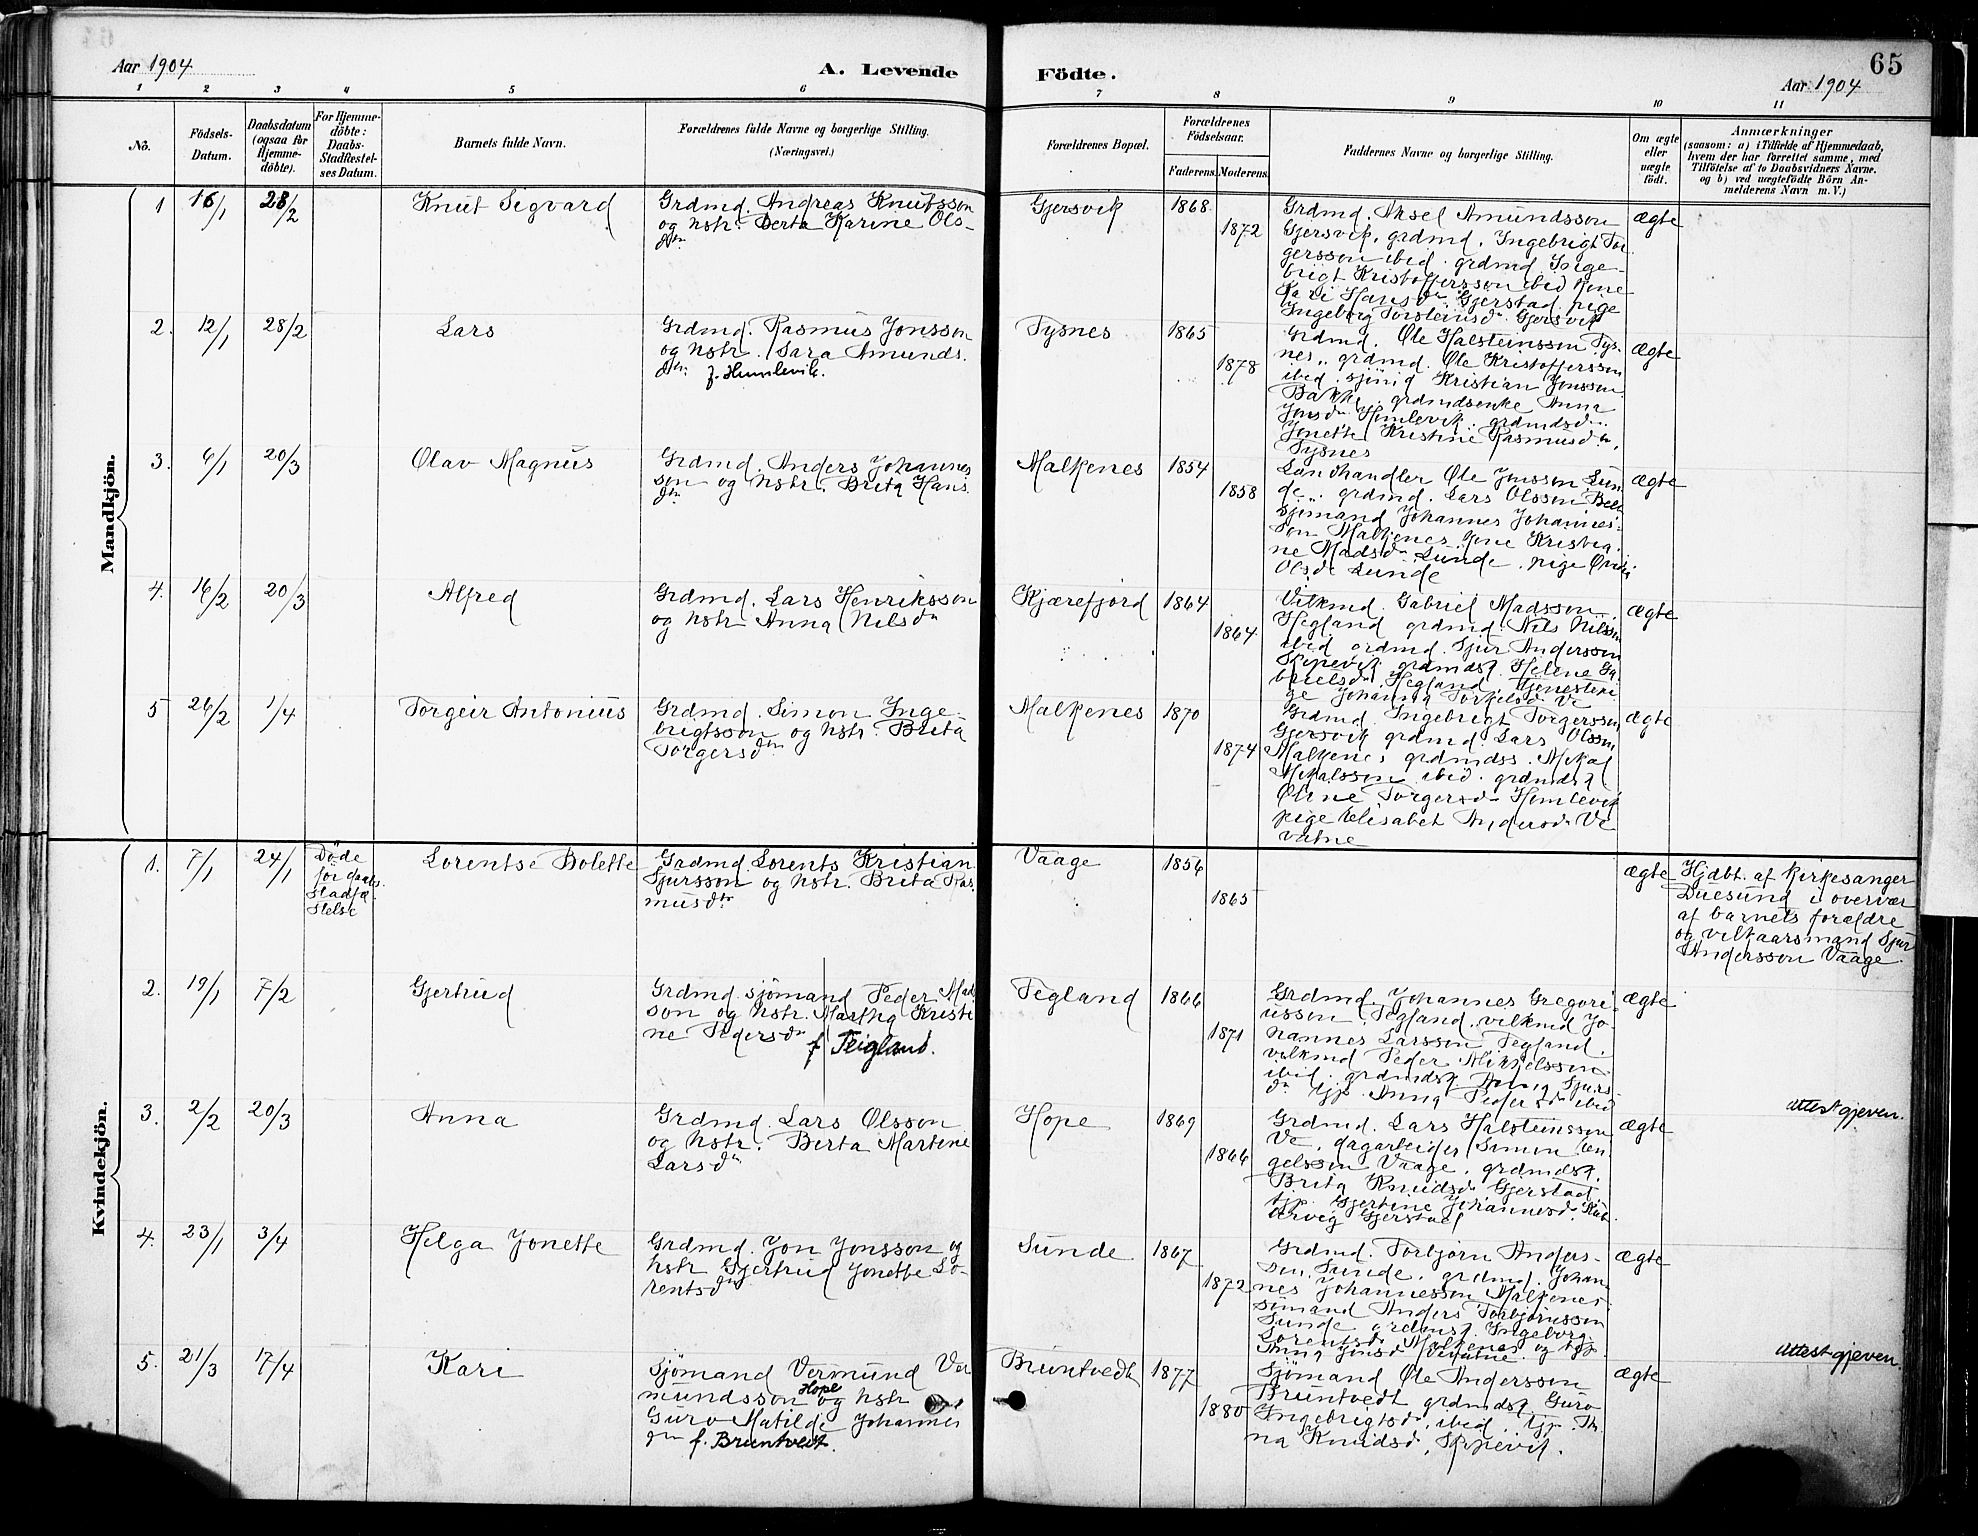 65
Aar 1904
A. Levende Födte.
Aar 1904
1 2 3 4 5 6 7 8 9 10 11
No.
Födsels-
Datum.
Daabsdatum
(ogsaa for
Hjemme-
döbte).
For Hjemme-
döbte:
Daabs-
Stadfæstel-
ses Datum.
Barnets fulde Navn.
Forældrenes fulde Navne og borgerlige Stilling.
(Næringsvei.)
Forældrenes Bopæl.
Forældrenes
Födselsaar.
Faderens. Moderens.
Faddernes Navne og borgerlige Stilling.
Om ægte
eller
uægte
födt.
Anmærkninger
(saasom: a) i Tilfælde af Hjemmedaab,
hvem der har forrettet samme, med
Tilföielse af to Daabsvidners Navne,
og b) ved uægtefödte Börn An-
melderens Navn m. V.)
Mandkjön.
1 16/1 28/2 Knut Sigvard
Grdmd. Andreas Knutsson
og hstr. Berta Karine Ols-
dtr
Gjersvik 1868 1872
Grdmd. Aksel Amundsson
Gjersvik, grdmd. Ingebrigt Tor
gersson ibid. grdmd. Inge-
brigt Kristoffersson ibid kone
Kari Hansdr Gjerstad, pige
Ingeborg Torsteinsdr Gjersvik
ægte
2. 12/1 28/2 Lars
Grdmd. Rasmus Jonsson
og hstr. Sara Amunds.
dtr f. Humlevik.
Tysnes 1865 1878
Grdmd. Ole Halsteinsson Tys-
nes, grdmd. Ole Kristoffersson
ibid. sjömd Kristian Jonsson
Bakke, grdmdsenke Anna
Jonsdr Humlevik, grdmdsdr
Jonette Kristine Rasmusdr,
Tysnes
ægte
3. 6/1 20/3 Olav Magnus
Grdmd. Anders Johannes
son og hstr. Brita Hans.
dtr
Malkenes 1854 1858
Landhandler Ole Jonsson Sun
de, grdmd. Lars Olsson
sjömand Johannes Johannes-
son Malkenes, kone Kristia
ne Madsdr Sunde, pige
Olsdr Sunde
ægte
4. 16/2 20/3 Alfred
Grdmd. Lars Henriksson
og hstr Anna Nilsdr
Kjærefjord 1864 1864
Vilkmd. Gabriel Madsson
Hegland grdmd. Nils Nilsson
ibid grdmd. Sjur Andersson
Skipevik grdmdsk. Helene Ga
brielsdr Hegland, tjenestepi
ge Johanna Torkelsdr Ve
ægte
5 26/2 1/4 Torgeir Antonius
Grdmd. Simon Inge
brigtsson og hstr. Brita
Torgersdtr
Malkenes 1870 1874
Grdmd. Ingebrigt Torgersson,
Gjersvik grdmd. Lars Olsson
Malkenes grdmdss. Mikal
Mikalsson ibid. grdmdsk
Oline Torgersdr Humlevik
pige Elisabet Andersdr Ve
vatne
ægte
Kvindekjön.
1. 7/1 24/1
Döde
för daabs.
stadfæ
stelse
Lorentse Bolette
Gadmd. Lorents Kristian
Sjursson og hstr. Brita Ras
musdtr
Vaage 1856 1865
ægte
Hjdbt. af kirkesanger
Duesund i overvær
af barnets forældre
og vilkaarsmand Sjur
Andersson Vaage.
2. 19/1 7/2 Gjertrud
Grdmd. sjömand Peder Mad
son og hstr. Martha Kristi
ne Pedersdr
f Teigland.
Tegland 1866 1871
Grdmd. Johannes Gregori-
usson Tegland, vilkmd Jo-
hannes Larsson Tegland.
vilkmd Peder Mikkelsson
ibid. grdmdsk Anna Sjurs
dr tjp. Anna Pedersdr ibid
ægte
3. 2/2 20/3 Anna
Grdmd. Lars Olsson
og hstr. Berta Martine
Larsdr
Hope 1869 1866
Grdmd. Lars Halsteinsson
Ve, dagarbeider Simon En
gelsson Vaage, grdmdsk.
Brita Knudsdr Gjerstad
tjp. Gjertine Johannesd.
Gjerstad
ægte
attest gjeven.
4. 23/1 3/4 Helga Jonette
Grdmd. Jon Jonsson og
hstr Gjertrud Jonette Lo-
rentsdtr
Sunde 1867 1872
Grdmd. Torbjörn Anders-
son, Sunde, grdmd. Johan
nes Johannesson Malkenes
sömand Anders Torbjörnsson
Sunde grdmsk. Ingeborg
Lorentsdr Malkenes og tjp
Anna Jonsdr Vevatne
ægte
5. 21/3 17/4 Kari
Sjömand Vermund Ver
mundsson Hope og hstr
Guro Matilde Johannes
dtr f. Bruntvedt.
Bruntvedt 1877 1880
Sjömand Ole Andersson
Bruntvedt grdmdsk Guro
Ingebrigtsdr, ibid. tjp. Th
na Knudsd, Skipevik.
ægte
attest gjeven